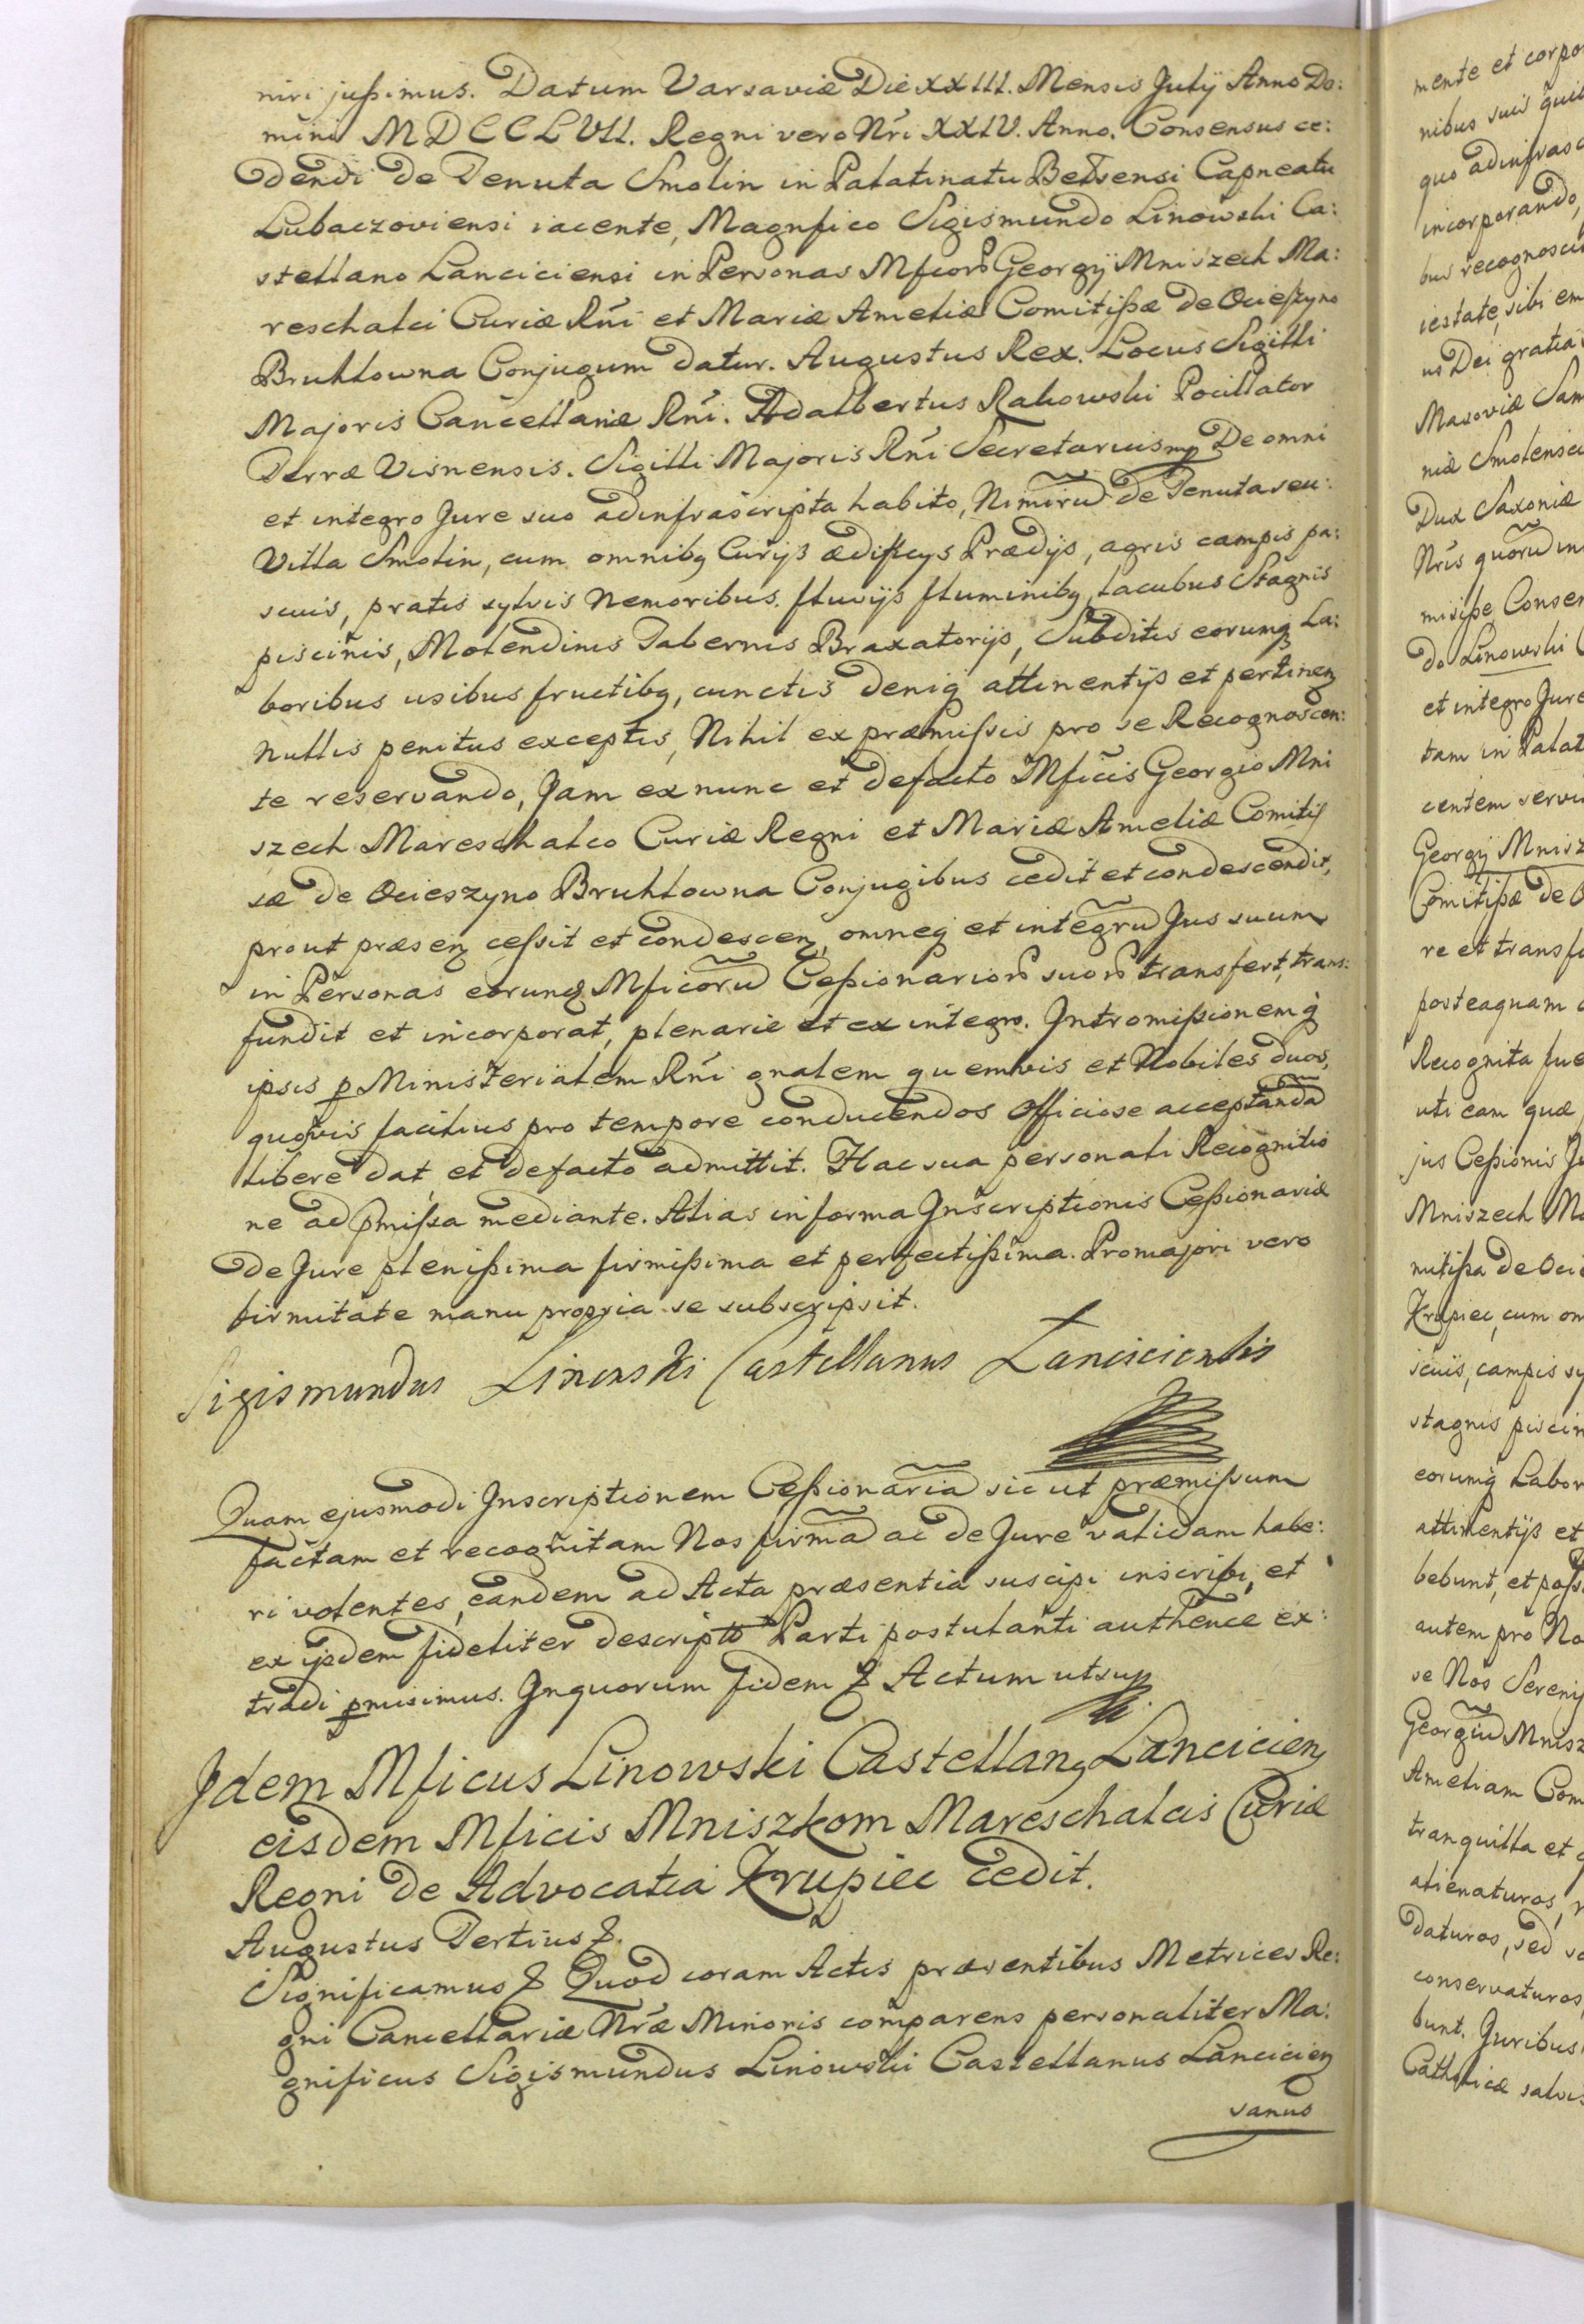 niri jußimus. Datum Varsaviæ Die XXIII. Mensis Julij Anno Do:
mini MDCCLVII. Regni vero Nr̃i XXIV. Anno. Consensus ce:
dendi de Tenuta Smolin in Palatinatu Belzensi Capneatu
Lubaczoviensi iacente, Magnfico Sigismundo Linowski Ca:
stellano Lanciciensi in Personas Mfcorũ Georgij Mniszech Ma:
reschalci Curiæ Rñi et Mariæ Ameliæ Comitißæ de Ocieszyno
Bruhlowna Conjugum datur. Augustus Rex. Locus Sigilli
Majoris Cancellariæ Rñi. Adalbertus Rakowski Pocillator
Terræ Visnensis. Sigilli Majoris Rñi Secretarius mp De omni
et integro Jure suo ad infrascripta habito, Nimirũ de Tenuta seu
Villa Smolin, cum omnibq Curijs ædificys Prædijs, agris campis pa:
scuis, pratis sylvis Nemoribus. fluvijs fluminibq, lacubus Stagnis
piscinis, Molendinis Tabernis Braxatorijs, Subditis eorumq La:
boribus usibus fructibq, cunctis deniq attinentijs et pertinen
Nullis penitus exceptis, Nihil ex præmissis pro se Recognoscen:
te reservando, Jam ex nunc et defacto Mficis Georgio Mni
szech Mareschalco Curiæ Regni et Mariæ Ameliæ Comitis
sæ de Ocieszyno Bruhlowna Conjugibus cedit et condescendit,
prout præsen cessit et condescen, omneq et integrũ Jus suum
in Personas eorunq Mficorũ Ceßionariorũ suorũ transfert, trans:
fundit et incorporat, plenarie et ex integro. Intromißionemq
ipsis p Ministerialem Rñi gnalem quemvis et Nobiles duos,
quosvis facilius pro tempore conducendos Officiose acceptandã
libere dat et defacto admittit. Hac sua personali Recognitio
ne ad pmißa mediante. Alias in forma Inscriptionis Ceßionariæ
de Jure plenißima firmißima et perfectißima. Pro majori vero
firmitate manu propria se subscripsit.
Sigismundus Linowski Castellanus Lanciciensis
Quam ejusmodi Inscriptionem Ceßionariã sic ut præmißum
factam et recognitam Nos firmã ac de Jure validam habe:
ri volentes, eandem ad Acta præsentia suscipi inscribi, et
ex ijsdem fideliter descriptã Parti postulanti authence ex:
tradi pmisimus. In quorum fidem & Actum ut sup
Idem Mficus Linowski Castellanq Lancicien
eisdem Mficis Mniszkom Mareschalcis Curiæ
Regni de Advocatia Krupiec cedit.
Augustus Tertius &.
Significamus & Quod coram Actis præsentibus Metrices Re:
gni Cancellariæ Nr̃æ Minoris comparens personaliter Ma:
gnificus Sigismundus Linowski Castellanus Lancicien
sanus
mente et corpo
nibus suis quib
quo ad infrasc
incorporando,
bus recognosci
iestate, sibi em
us Dei gratia
Masoviæ Sam
niæ Smolensci
Dux Saxoniæ
Nr̃is quorũ in
misiße Consen
do Linowski C
et integro Jure
tam in Palat
centem servi
Georgij Mnisz
Comitißæ de O
re et transfu
posteaquam c
Recognita fue
uti eam quæ
jus Ceßionis Ju
Mniszech Ma
mitißa de Oci
Krupiec, cum om
scuis, campis sy
stagnis piscin
eorumq Labor
attinentijs et
bebunt, et poßi
autem pro No
se Nos Sereniß
Georgiũ Mnisz
Ameliam Com
tranquilla et
alienaturos,
daturos, sed
conservaturos
bunt. Juribus
Catholicæ salvis